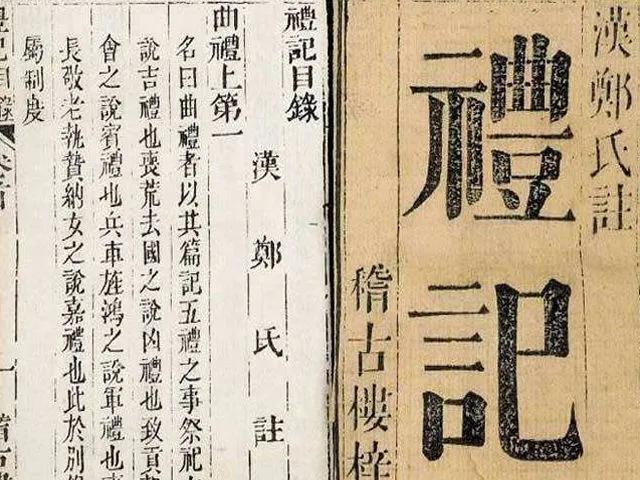 漢鄭氏註
禮記
稽古樓梓
禮記目錄
漢鄭氏註
曲禮上第一
名曰曲禮者以其篇記五禮之事祭祀
說吉禮也喪荒去國之說凶禮也致貢
會之說賓禮也兵車旌鴻之說軍禮也事
長敬老執贄納女之說嘉禮也此於別
屬制度
禮記目錄
一